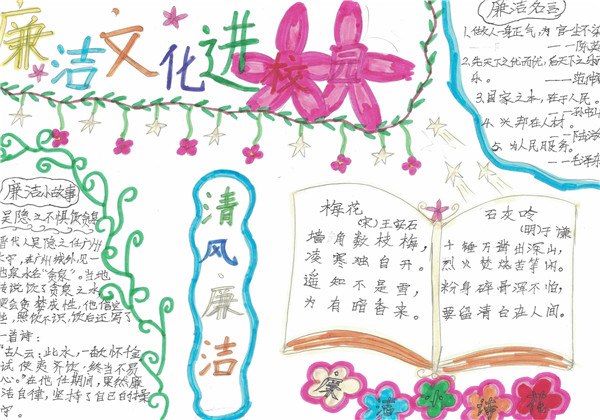 廉洁文化进校园
廉洁名言
1.做人一身正气,为官一尘不染
2.先天下之忧而忧,后天下之乐
乐。
3.国家之本,在于人民。
4.兴邦在人材。
5.为人民服务。
——毛泽东
廉洁小故事
吴隐之不惧饮贪泉
晋代人吴隐之任广州
太守,在广州城外,见一
泉水名"贪泉"。当地
传说饮了贪泉之水,
便会贪婪成性,他偏
照饮不识,饮后还写了
一首诗:
"古人云:此水,一歃怀千金
试使夷齐饮,终当不易
心。"在他任期间,果然廉
洁自律,坚持了自己自操
守。
清风·廉洁
梅花
(宋)王安石
墙角数枝梅,
凌寒独自开。
遥知不是雪,
为有暗香来。
石灰吟
(明)于谦
千锤万凿出深山,
烈火焚烧若等闲。
粉身碎骨浑不怕,
要留清白在人间。
廉洁小浪花